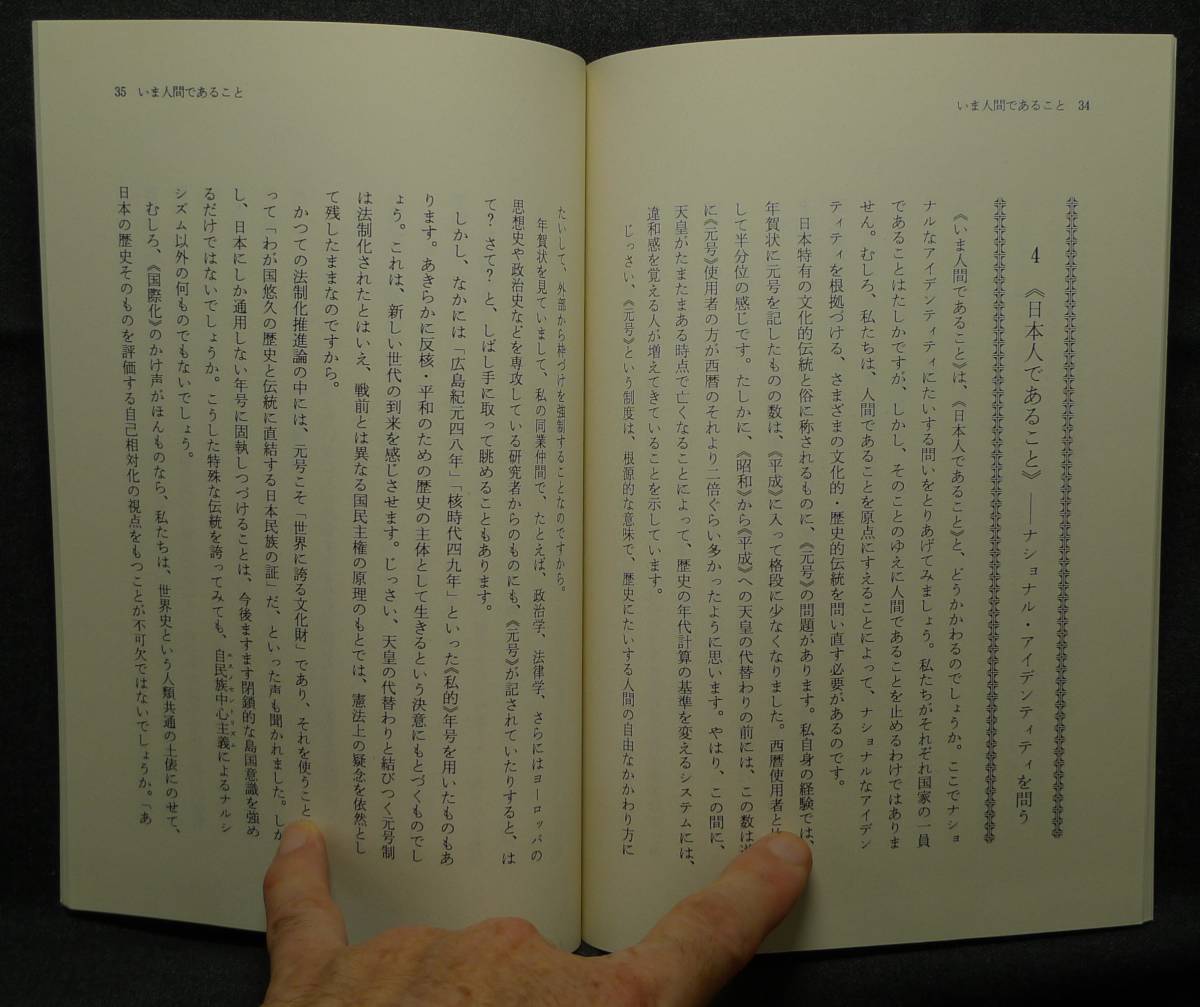 いま人間であること 34
4 《日本人であること》――ナショナル・アイデンティティを問う
《いま人間であること》は、《日本人であること》と、どうかかわるのでしょうか。ここでナショ
ナルなアイデンティティにたいする問いをとりあげてみましょう。私たちがそれぞれ国家の一員
であることはたしかですが、しかし、そのことのゆえに人間であることを止めるわけではありま
せん。むしろ、私たちは、人間であることを原点にすえることによって、ナショナルなアイデン
ティティを根拠づける、さまざまの文化的・歴史的伝統を問い直す必要があるのです。
日本特有の文化的伝統と俗に称されるものに、《元号》の問題があります。私自身の経験では、
年賀状に元号を記したものの数は、《平成》に入って格段に少なくなりました。西暦使用者と
して半分位の感じです。たしかに、《昭和》から《平成》への天皇の代替わりの前には、この数は
に《元号》使用者の方が西暦のそれより二倍ぐらい多かったように思います。やはり、この間に、
天皇がたまたまある時点で亡くなることによって、歴史の年代計算の基準を変えるシステムには、
違和感を覚える人が増えてきていることを示しています。
じっさい、《元号》という制度は、根源的な意味で、歴史にたいする人間の自由なかかわり方に
35 いま人間であること
たいして、外部から枠づけを強制することなのですから。
年賀状を見ていまして、私の同業仲間で、たとえば、政治学、法律学、さらにはヨーロッパの
思想史や政治史などを専攻している研究者からのものにも、《元号》が記されていたりすると、は
て? さて? と、しばし手に取って眺めることもあります。
しかし、なかには「広島紀元四八年」「核時代四九年」といった《私的》年号を用いたものもあ
ります。あきらかに反核・平和のための歴史の主体として生きるという決意にもとづくものでし
ょう。これは、新しい世代の到来を感じさせます。じっさい、天皇の代替わりと結びつく元号制
は法制化されたとはいえ、戦前とは異なる国民主権の原理のもとでは、憲法上の疑念を依然とし
て残したままなのですから。
かつての法制化推進論の中には、元号こそ「世界に誇る文化財」であり、それを使うこと
って「わが国悠久の歴史と伝統に直結する日本民族の証」だ、といった声も聞かれました。しか
し、日本にしか通用しない年号に固執しつづけることは、今後ますます閉鎖的な島国意識を強め
るだけではないでしょうか。こうした特殊な伝統を誇ってみても、自民族中心主義によるナルシ
エスノセントリズム
シズム以外の何ものでもないでしょう。
むしろ、《国際化》のかけ声がほんものなら、私たちは、世界史という人類共通の土俵にのせて、
日本の歴史そのものを評価する自己相対化の視点をもつことが不可欠ではないでしょうか。「あ